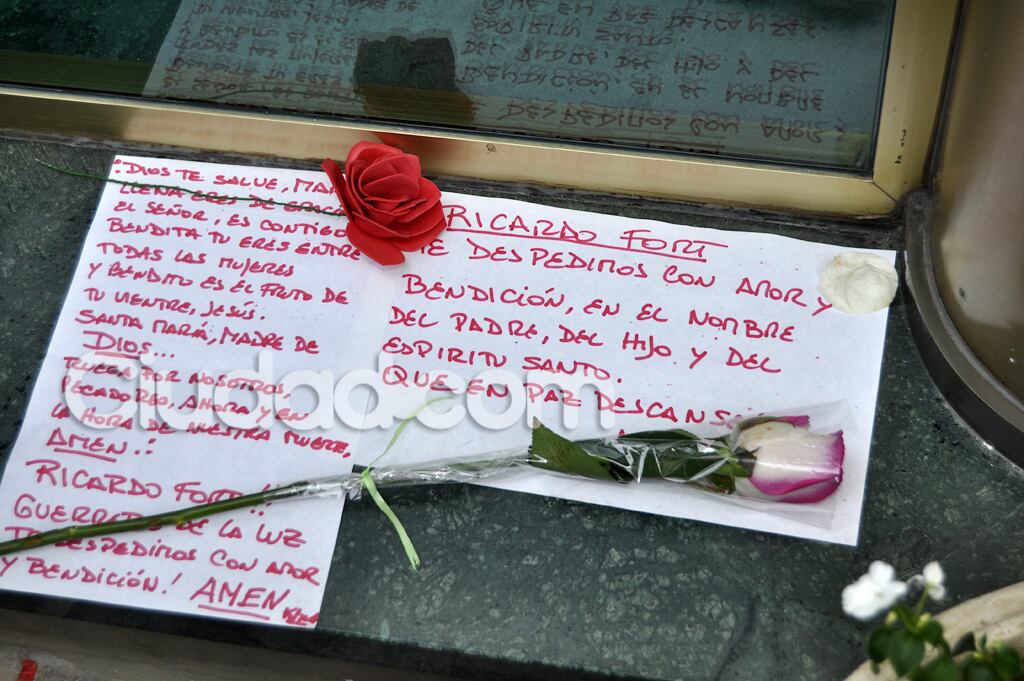 : DIOS TE SALUE, MAR
LLENA ERES DE GRACIA
EL SEÑOR. ES CONTIGO
BENDITA TU ERES ENTRE
TODAS LAS MUJERES
Y BENDITO ES EL FRUTO DE
TU VIENTRE, JESÚS.
SANTA MARÍA, MADRE DE
DIOS...
RUEGA POR NOSOTROS,
PECADORES, AHORA Y EN
LA HORA DE NUESTRA MUERTE,
AMEN.:
RICARDO FORT
GUERRERO DE LA LUZ
TE DESPEDIMOS CON AMOR
Y BENDICIÓN! AMEN
RICARDO FORT
TE DESPEDIMOS CON AMOR Y
BENDICIÓN, EN EL NOMBRE
DEL PADRE, DEL HIJO Y DEL
ESPIRITU SANTO.
QUE EN PAZ DESCANS
Ciudad.com